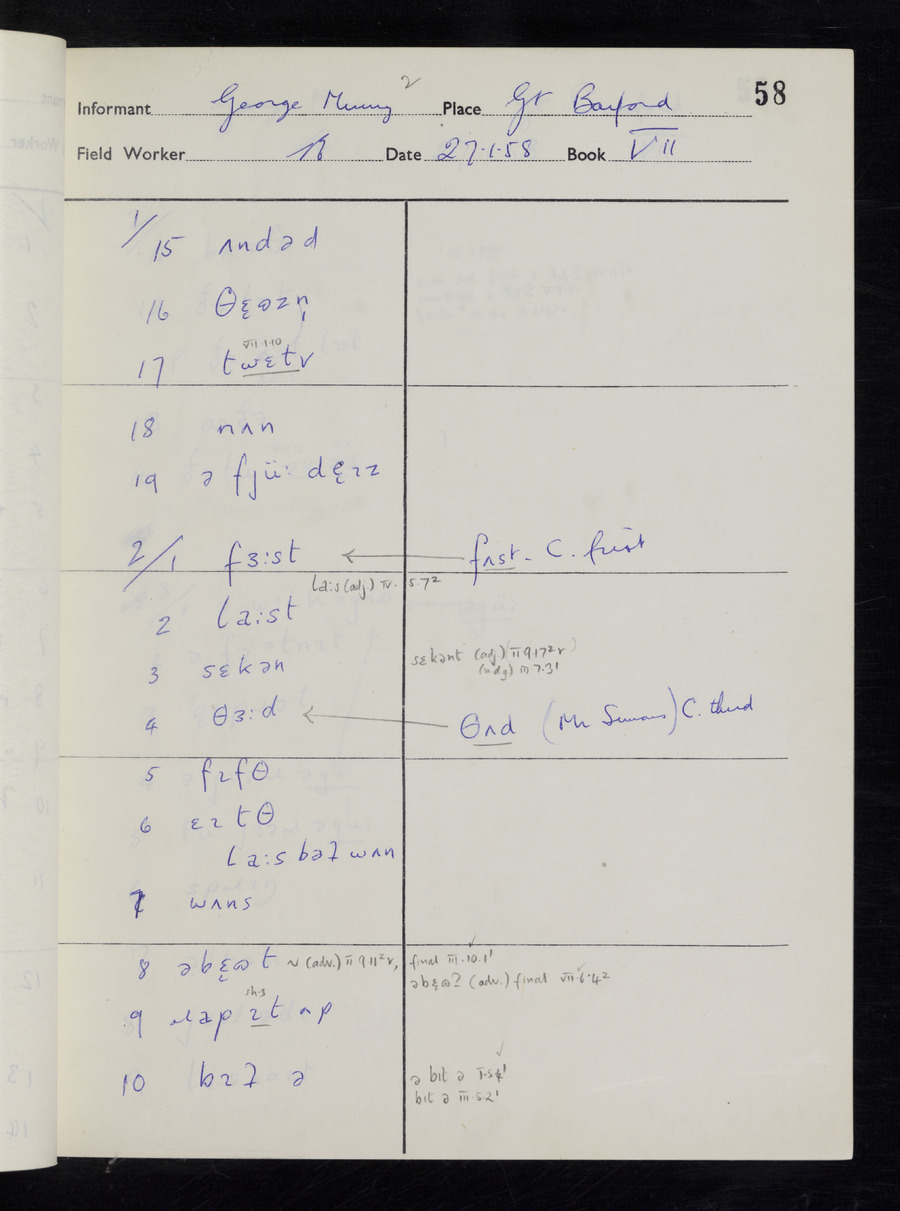 58
Informant George Murray 2 Place Gt Barford
Field Worker Date 27.1.58 Book VII
1/15 ʌndəd
16 θɛ̨ɷzn̩
VII.1.10
17 twɛtɪ
18 nʌn
19 ə fjü: dɛ̨ɪz
2/1 fɜ:st ← fʌst - C. first
la:s (adj.) IV. 5.7²
2 la:st
3 sɛkən sɛkənt (adj.) II 9.17² r
(adj) III 7.3¹
4 θɜ:d ← θʌd (Mr Simons) C. third
5 fɪfθ
6 ɛɪtθ
la:s bəʔ wʌn
7 wʌns
8 əbɛ̨ɷt ~ (adv.) II 9.11² r, final III.10.1¹
əbɛ̨ɷʔ (adv.) final VII.6.4²
sh.3
9 ɹəp ɪt ʌp
10 bɪʔ ə ə bɪt ə I.5.4¹
bɪt ə III.5.2¹